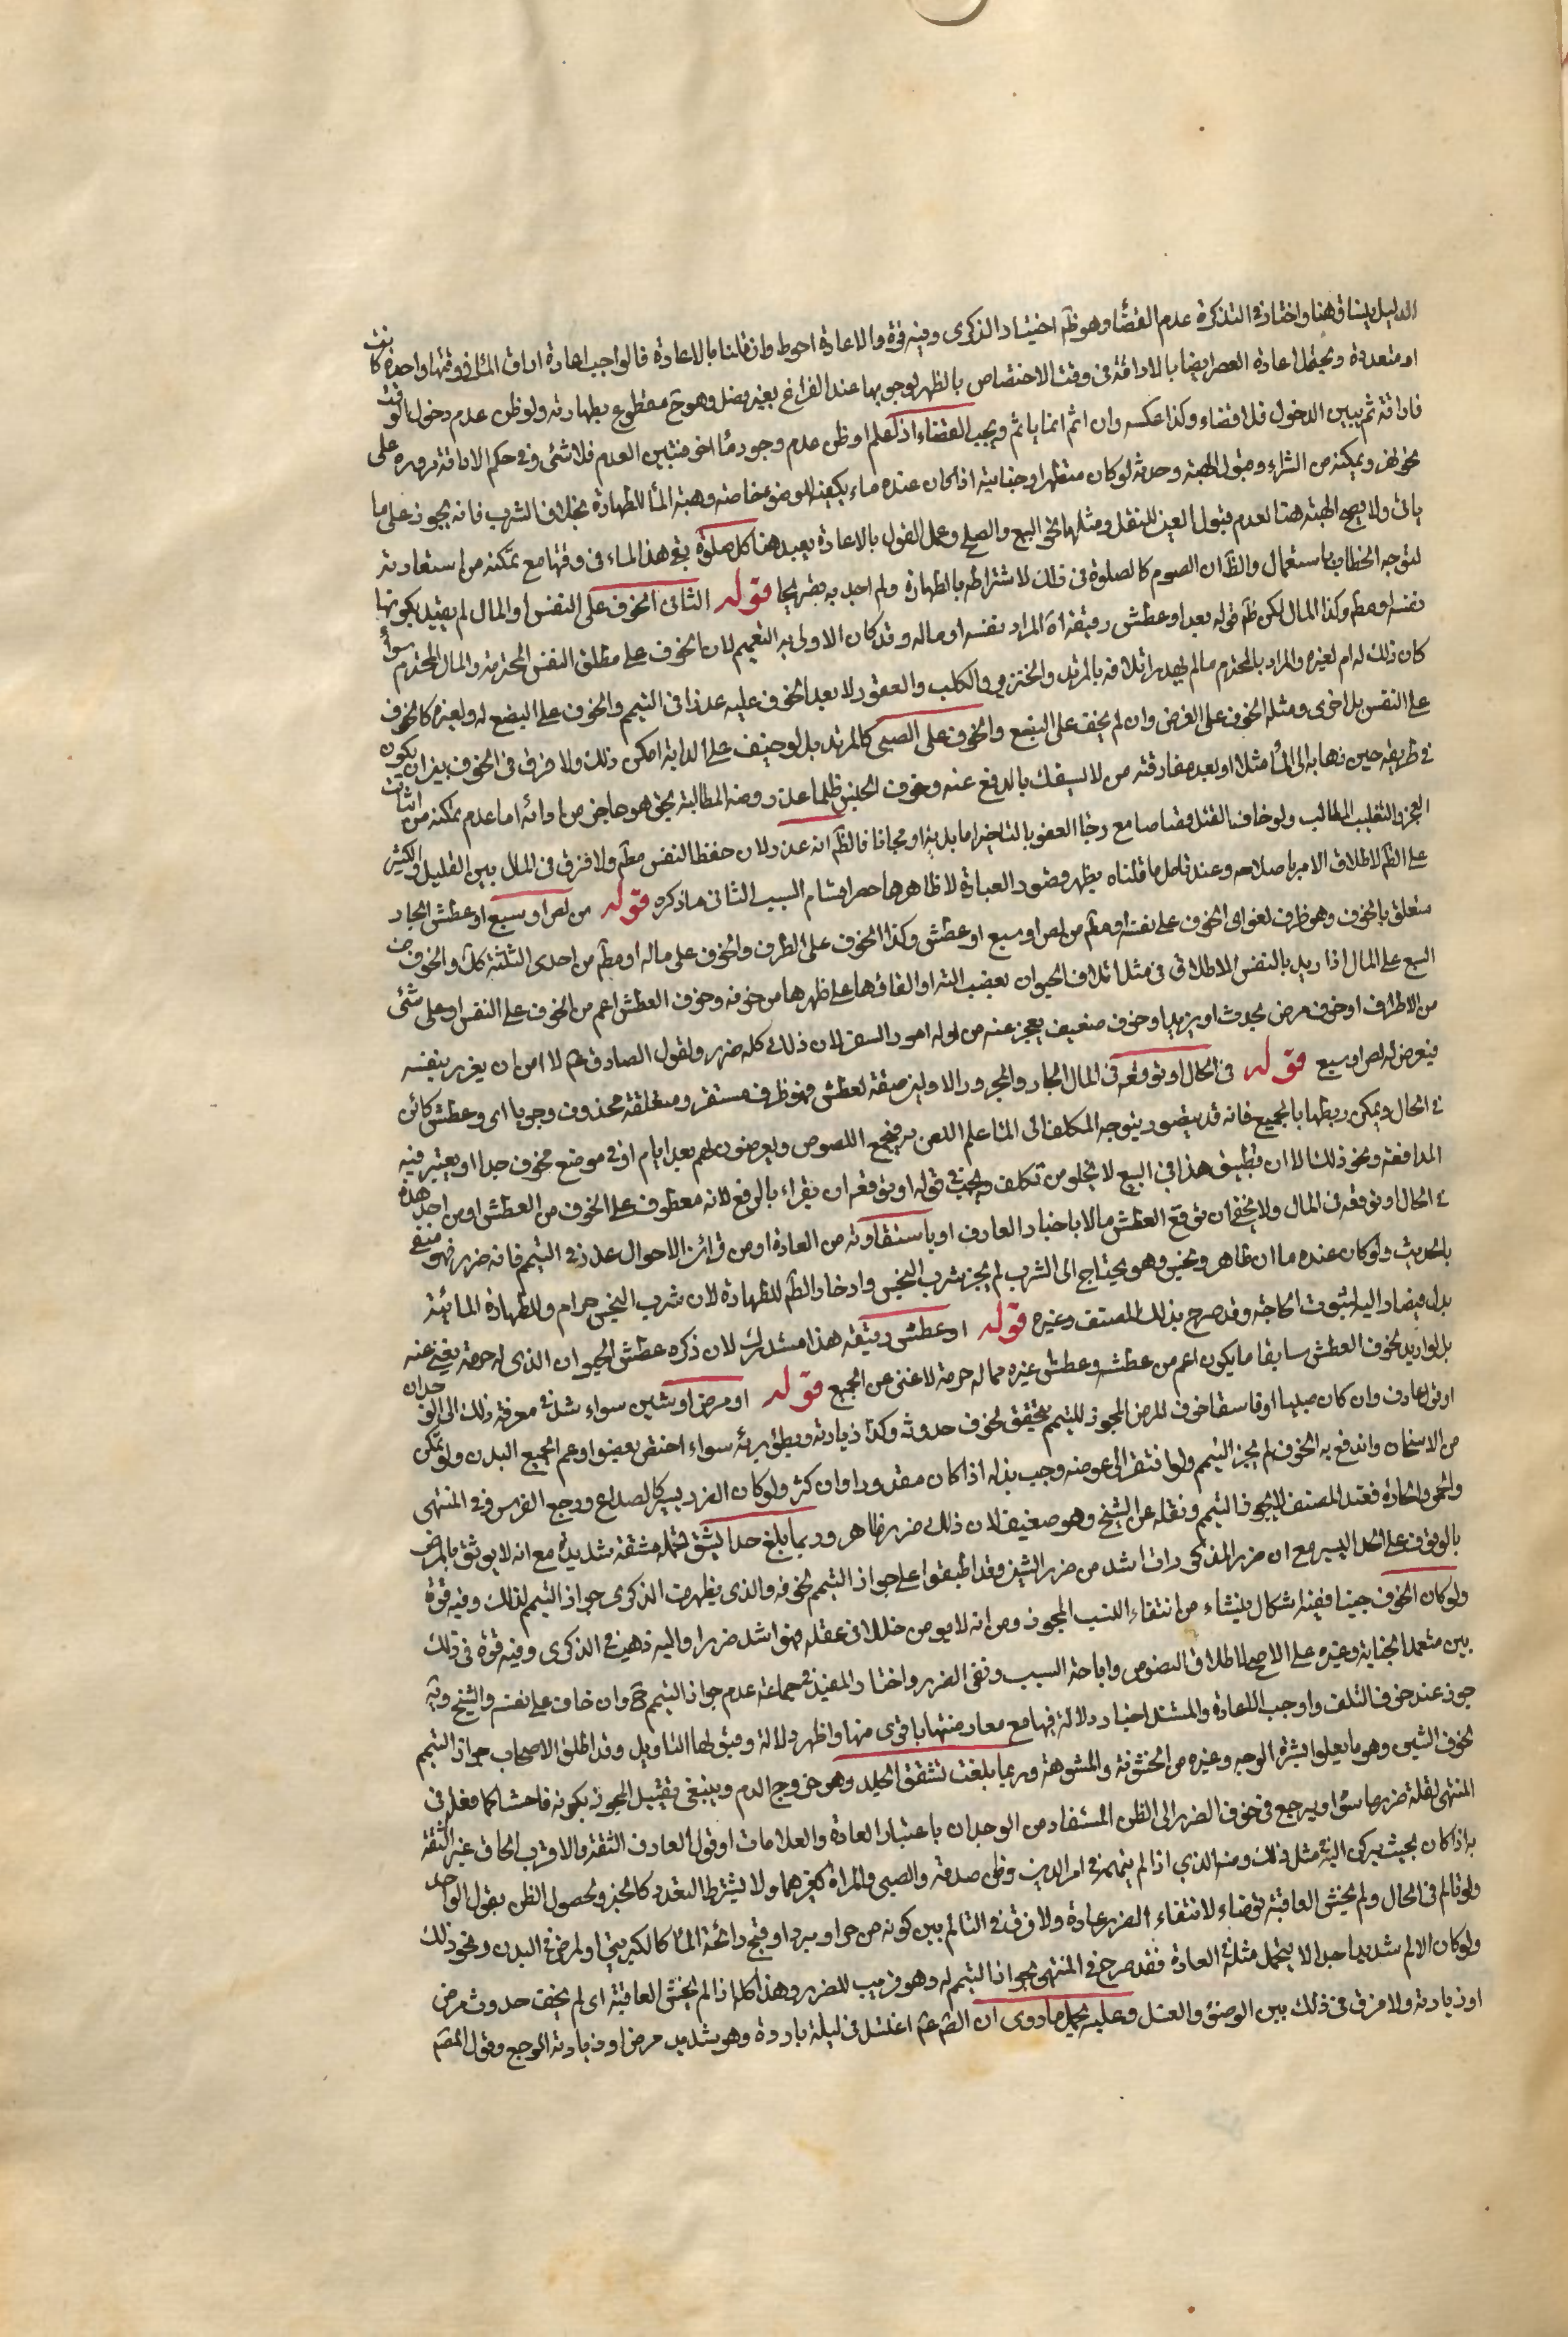 الدليل ينساق هنا واختار في التذكرة عدم القضا وهو ظ اختيار الذكرى وفيه قوة والاعادة احوط وان قلنا بالاعادة فالواجب اعادة اراق الماء في وقتها واحدة كانت
او متعددة ويحتمل اعادة العصر ايضا بالاراقة في وقت الاختصاص بالظهر لوجوبها عند الفراغ بغير فصل وهو ح مقطوع بطهارته ولو ظن عدم دخول الوقت
فاراقه ثم تبين الدخول فلا قضاء وكذا عكسه وان اثم انما ياثم ويجب القضاء اذ كعلم او ظن عدم وجود ماء اخر فتبين العدم فلا شئ وفي حكم الاراقة مروره على
نحو نهر ويمكنه من الشراء وقبول الهبة وحدثه لو كان متطهرا وجنابته اذا كان عنده ماء يكفيه للوضوء خاصة وهبة الماء للطهارة بخلاف الشرب فانه يجوز على ما
ياتي ولا يصح الهبة هنا لعدم قبول العين للنقل ومثلها نحو البيع والصلح وعلى القول بالاعادة يعيد هنا كل صلوة يقع هذا الماء في وقتها مع تمكنه من استعادته
لتوجه الخطاب باستعمال والظ ان الصوم كالصلوة في ذلك لاشتراطه بالطهارة ولم اجد به تصريحا قوله الثاني الخوف على النفس او المال لم يقيد بكونها
نفسه او مطم وكذا المال لكن ظم قوله بعد او عطش رفيقه اة المراد نفسه او ماله وقد كان الاولى به التعميم لان الخوف على مطلق النفس المحترمة والمال المحترم سواء
كان ذلك له ام لغيره والمراد بالمحترم ما لم يهدر اتلافه بالمرتد والخنزير والكلب والعقور لا يعد الخوف عليه عذرا في التيمم والخوف على البضع له ولغيره كالخوف
على النفس بل اخرى ومثله الخوف على العرض وان لم يخف على البضع والخوف على الصبي كالمرتد بل لو خيف على الدابة امكن ذلك ولا فرق في الخوف بين ان يكون
في طريقه حين ذهابه الى الماء مثلا او بعد مفارقته من لا يستقل بالدفع عنه وخوف الحبس ظلما عذر ومنه المطالبة بحق هو عاجز من ادائه اما عدم تمكنه من اثبات
العجز والتغليب المطالب ولو خاف القتل قصاصا مع رجاء العفو بالتاخير اما بدية او مجانا فالظ انه عذر لان حفظ النفس مطم ولا فرق في المال بين القليل والكثير
على الظ لاطلاق الامر باصلاحه وعند تامل ما قلناه يظهر قصور العبارة لا ظاهرها حصر اقسام السبب الثاني ما ذكره قوله من لص او سبع او عطش الجار
متعلق بالخوف وهو ظرف لغو اى الخوف على نفسه او مطم من لص او سبع او عطش وكذا الخوف على الطرف والخوف على ماله او مطم من احدى الثلثة كذلك والخوف من
السبع على المال اذا اريد بالنفس الاطلاق في مثل اتلاف الحيوان بعضب الته او القائها على ظهرها من خوفه وخوف العطش اعم من الخوف على النفس او على شئ
من الاطراف او خوف مرض يحدث او يزيد او خوف ضعيف يعجز عنه من اموله امور السفر لان ذلك كله ضرر ولقول الصادق عم لا امره ان يغرر بنفسه
فيعرض له لص او سبع قوله في الحال او توقعه في المال الجار والمجرور الاولين صفة لعطش فهو ظرف مستقر ومتعلقه محذوف وجوبا اى وعطش كائن
في الحال ويمكن ربطها بالجميع فانه قد يتصور بتوجه المكلف الى الماء علم اللص به فيجمع اللصوص ويعرضون لهم بعد ايام او في موضع مخوف جدا او يعتبر فيه
المدافعة ونحو ذلك الا ان تطبيق هذا في السبع لا يخلو من تكلف ويجب في قوله او توقعه ان يقراء بالرفع لانه معطوف على الخوف من العطش او من احد هذه
في الحال او توقعه في المال ولا يخفى ان توقع العطش مالا باخبار العارف او باستفاوته من العادة او من قرائن الاحوال عذر في التيمم فانه ضرر فهو منفي
بالحديث ولو كان عنده ماءان طاهر ونجس وهو يحتاج الى الشرب لم يجز شرب النجس وادخار الطم للطهارة لان شرب النجس حرام وللطهارة المائية
بدل فيضار اليه لثبوت الحاجة وقد صرح بذلك المصنف وغيره قوله او عطش رفيقه هذا مستدرك لان ذكره عطش الحيوان الذي له حرمة يغني عنه
بل لو اريد بخوف العطش سابقا ما يكون اعم من عطشه وعطش غيره مما له حرمة لاغنى عن الجميع قوله او مرض او شين سواء شك في معرفة ذلك الى الوجدان
او قول عارف وان كان صبيا او فاسقا خوف المرض المجوز للتيمم يتحقق بخوف حدوثه وكذا زيادته وبطؤ برئه سواء اختص بعضو او عم الجميع البدن ولو تمكن
من الاسخان واندفع به الخوف لم يجز التيمم ولو افتقر الى عوضه وجب بذله اذا كان مقدورا وان كثر ولو كان المرض يسيرا كالصداع ووجع الضرس ففي المنتهى
والتحرير والحادة فعند المصنف لا يجوز التيمم ونقله عن الشيخ وهو ضعيف لان ذلك ضرر ظاهر وربما بلغ حدا يشق تحمله مشقة شديدة مع انه لا يوثق بالمرض
بالوقوف على الحد اليسير مع ان ضرر المذكورات اشد من ضرر الشين وقد اطبقوا على جواز التيمم لخوفه والذي يظهر من الذكرى جواز التيمم لذلك وفيه قوة
ولو كان الخوف جبنا ففيه اشكال ينشاء من انتفاء السبب المجوز ومن انه لا يومن خللا في عقله فهو اشد ضررا واليه ذهب في الذكرى وفيه قوة في ذلك
بين متعمد الجنابة وغيره على الاصح لاطلاق النصوص واباحة السبب ونفي الضرر واختار المفيد في جماعة عدم جواز التيمم ح وان خاف على نفسه والشيخ وية
جوز عند خوف التلف واوجب الاعادة والمستند اخبار دلالة فيها مع معارضتها باقوى منها واظهر دلالة وقبولها التاويل وقد اطلق الاصحاب جواز التيمم
لخوف الشين وهو ما يعلوا بشرة الوجه وغيره من الخشونة والمشوهة وربما بلغت تشقق الجلد وهو خروج الدم وينبغي تقييد المجوز بكونه فاحشا كما فعل في
المنتهى لقلة ضرر ما سواه ويرجع في خوف الضرر الى الظن المستفاد من الوجدان باعتبار العادة والعلامات او قول العارف الثقة والاقرب الحاق غير الثقة
به اذا كان بحيث يركن اليه في مثل ذلك ومنه الذي اذا لم يتهم في امر الدين وظن صدقه والصبي والمراة كغيرهما ولا يشترط التعدد كالخبر ولحصول الظن بقول الواحد
ولو تالم في الحال ولم يخش العاقبة توضاء لانتفاء الضرر عادة ولا فرق في التالم بين كونه من حر او برد او قبح رائحة الماء كالكبريتي او لمرض في البدن ونحو ذلك
ولو كان الالم شديدا جدا لا يتحمل مثله في العادة فقد صرح في المنتهى بجواز التيمم له وهو قريب للضرر وهذا كله اذا لم يخش العاقبة اى لم يخف حدوث مرض
او زيادته ولا فرق في ذلك بين الوضوء والغسل وعليه يحمل ما روى ان الصم عم اغتسل في ليلة باردة وهو شديد مرض او زيادته الوجع وقول المصم